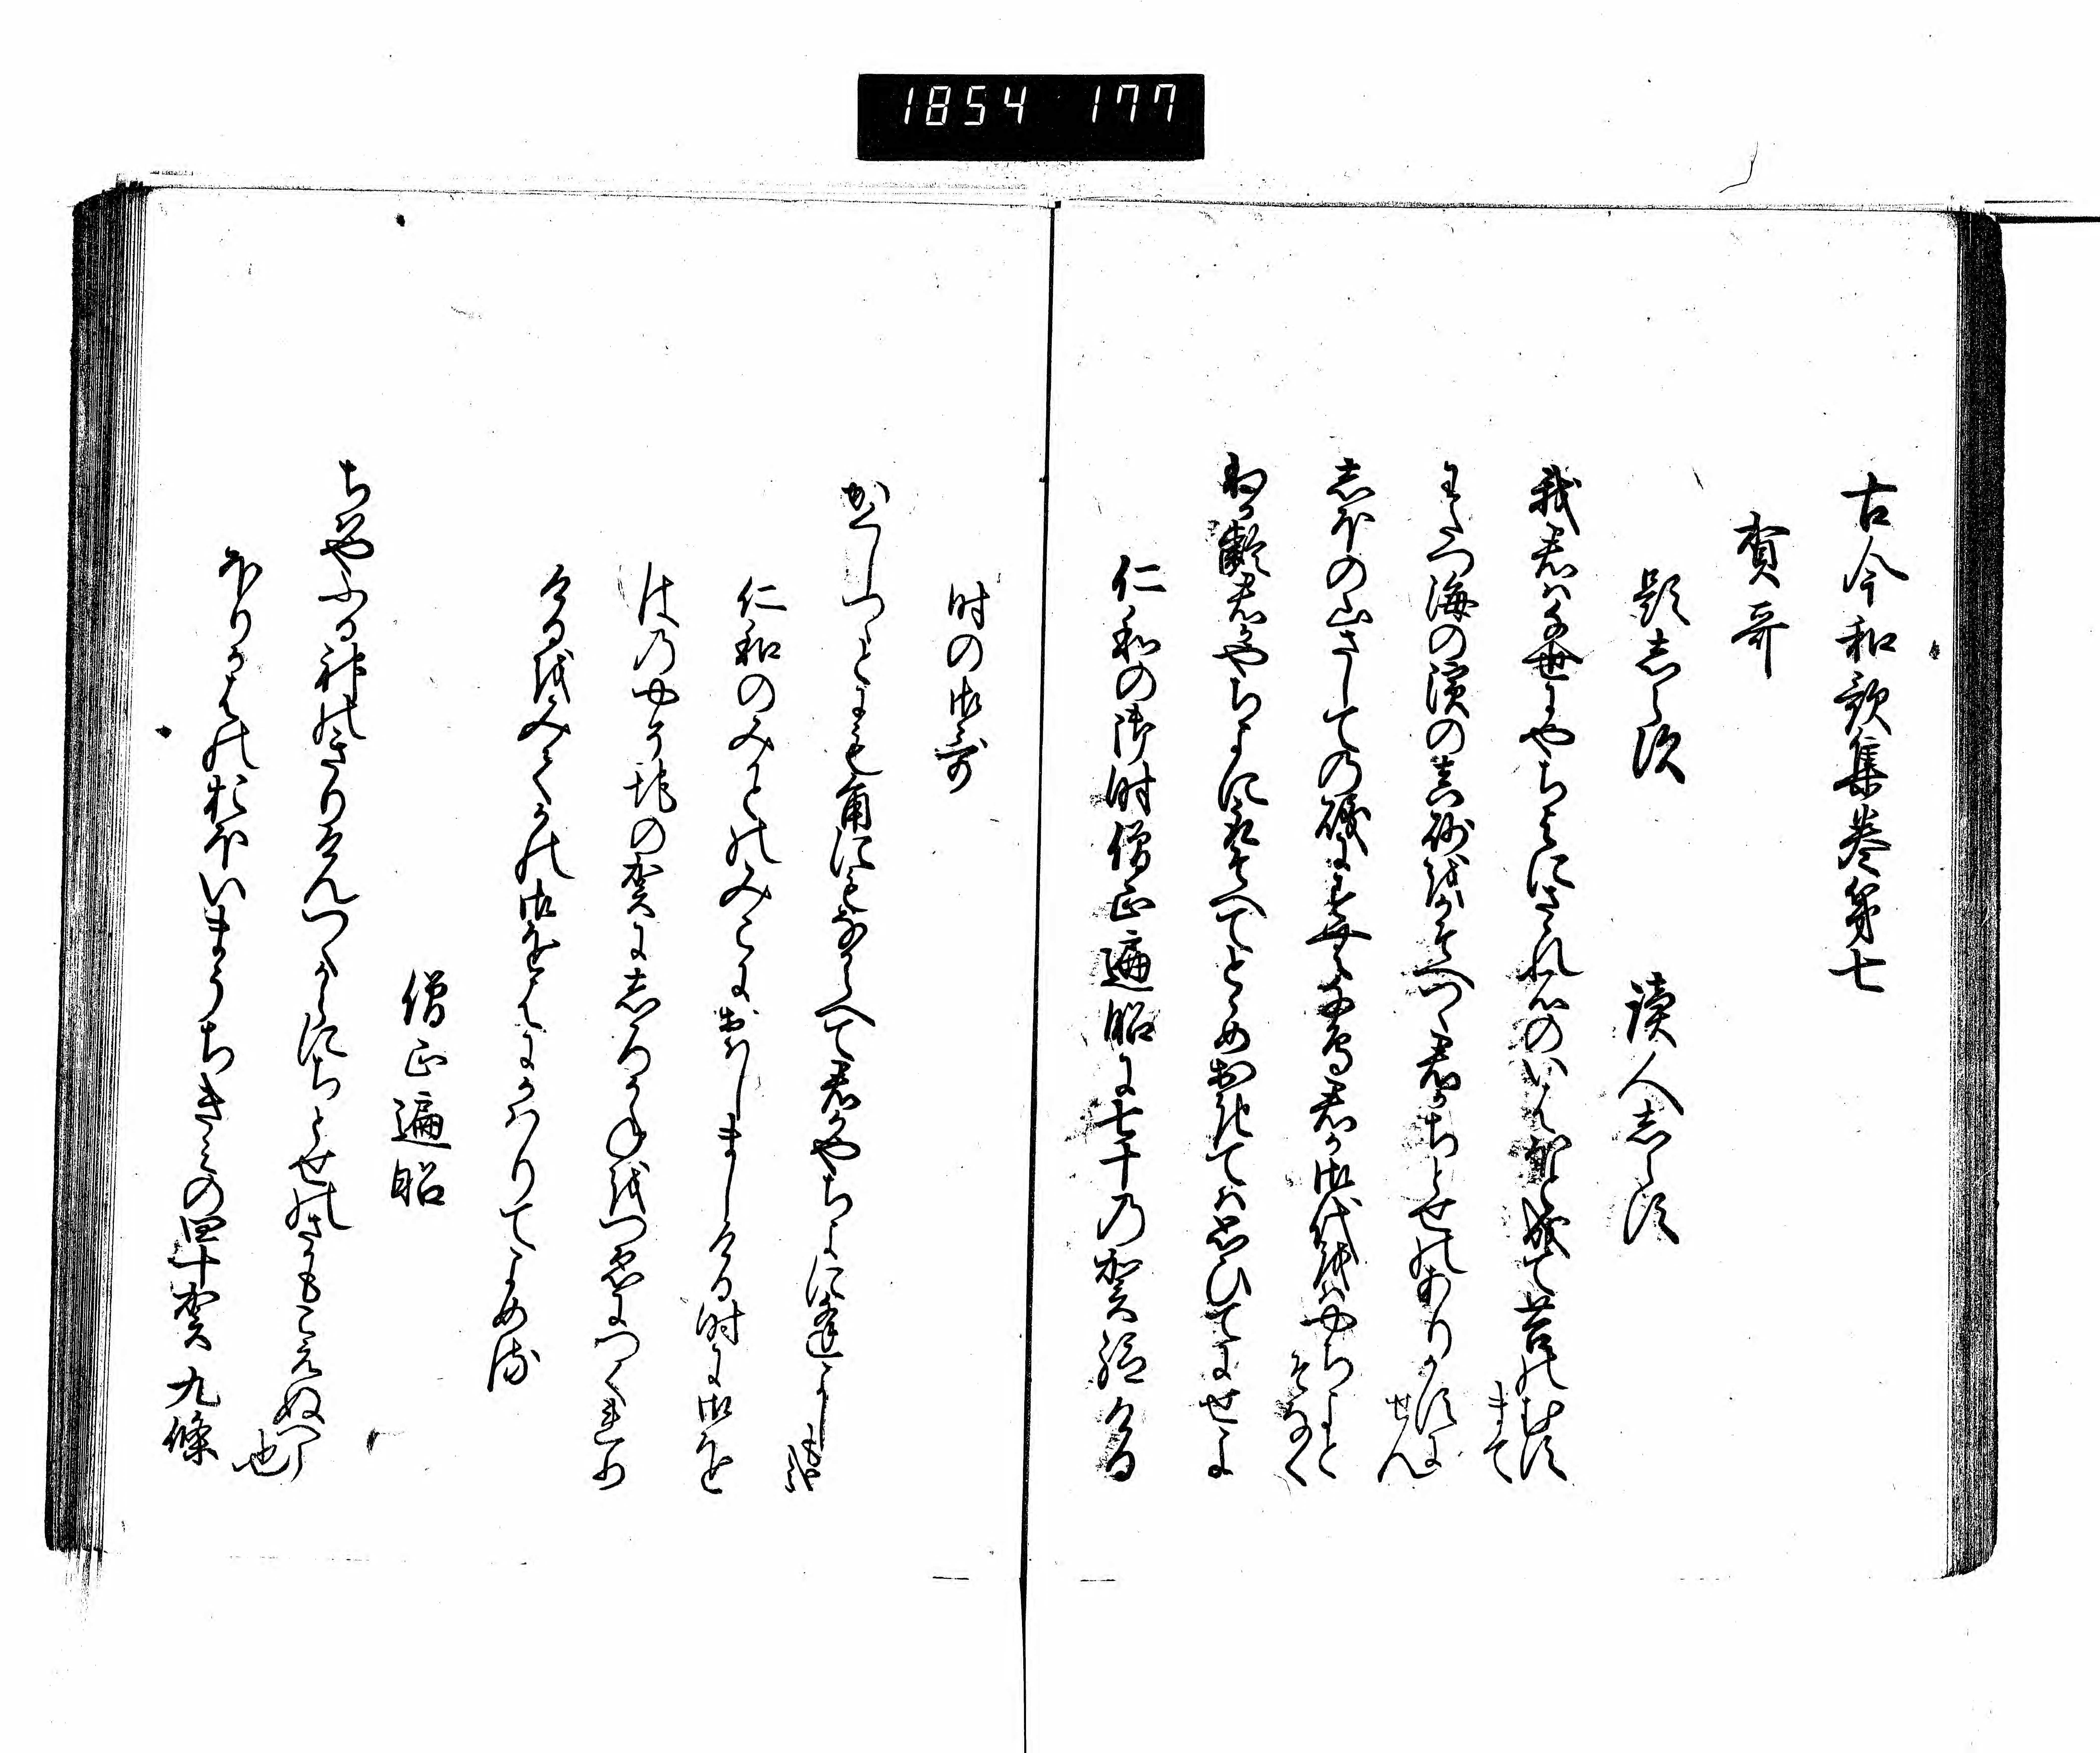 1854 177
古今和歌集巻第七
賀哥
題志らす
読人志らす
我君は千世にやちよにさゝれ石のいはほと成て苔のむす
まて
わたつ海の濱の真砂をかそへつゝ君かちとせのありかすに
せん
志ほの山さしての磯にすむ千鳥君か御代をはやちよと
そなく
わか齢君かやちよにとりそへてとゝめおきては思ひてにせよ
仁和の御時僧正遍昭に七十乃賀給ける
时の御哥
かくしつゝとにもかくにもなからへて君かやちよに逢よしも
哉
仁和のみかとのみこにおはしましける时に御を
はのやそちの賀に志ろかねをつゑにつくれり
けるをみてかの御をはにかはりてよめる
僧正遍昭
ちはやふる神のきりけんつくからにちとせのさかもこえぬへら
也
ほりかはのおほいまうちきみの四十賀九條